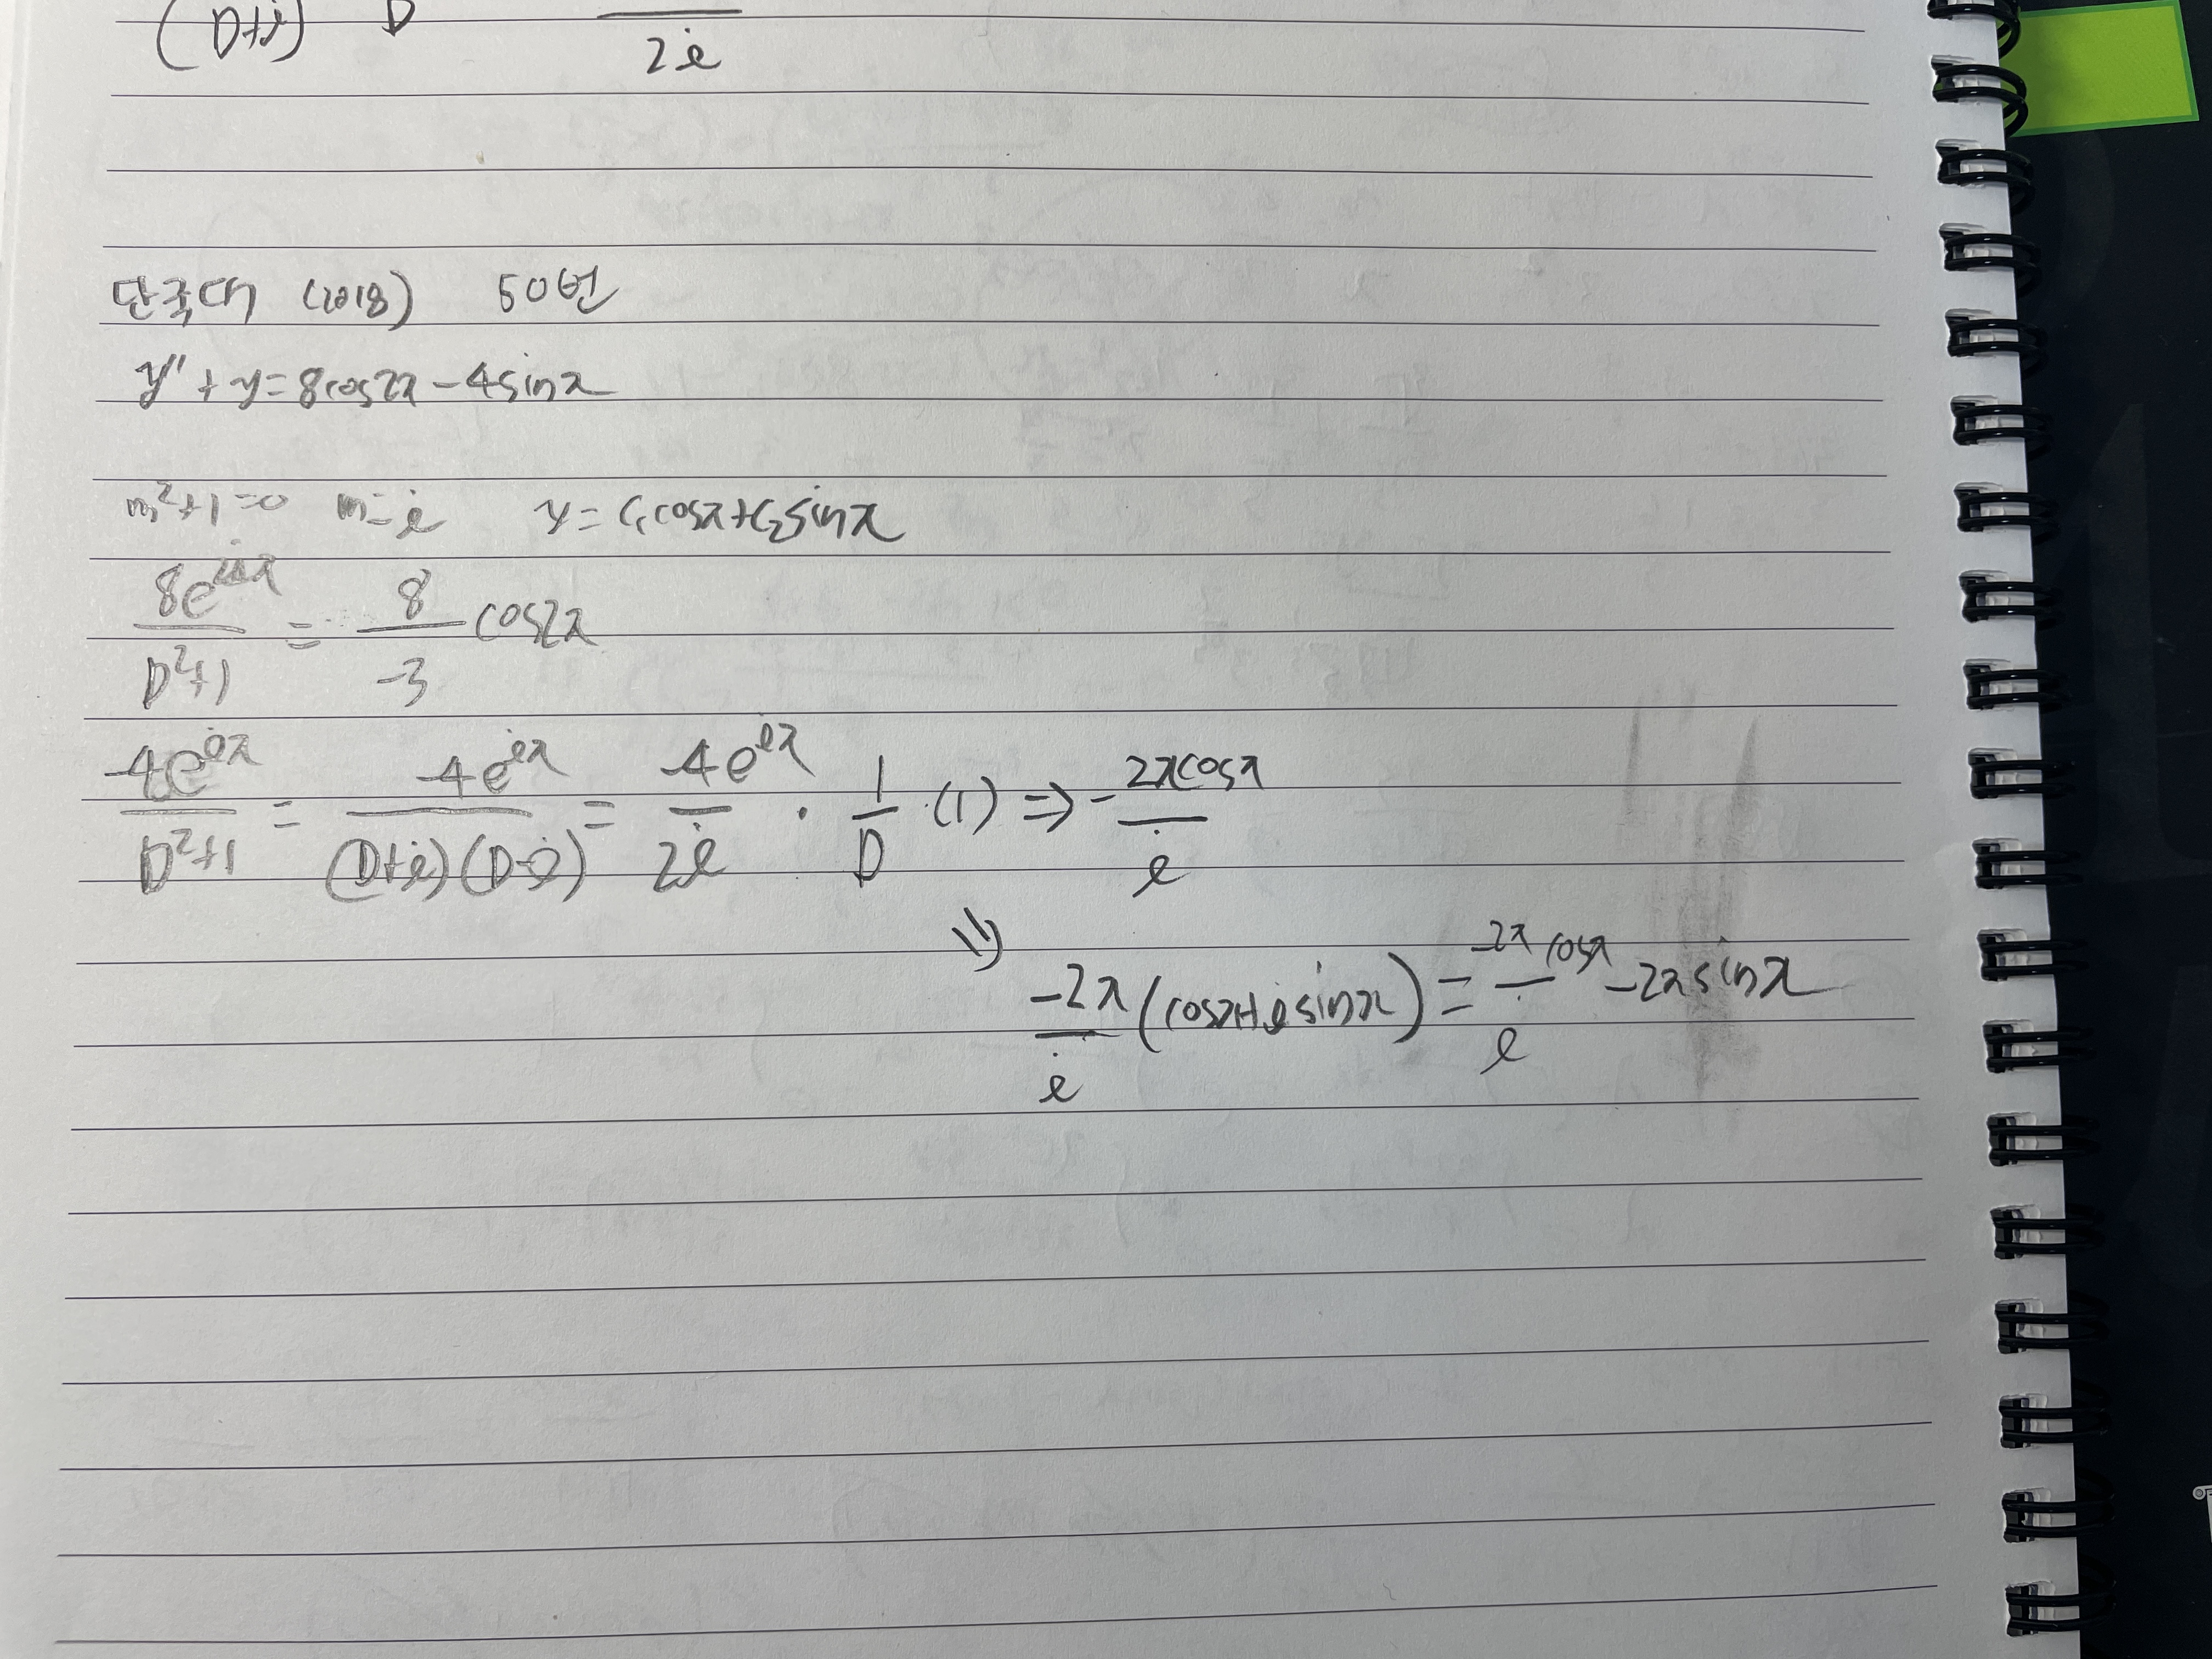 (D+i) D 2i
단국대 (2018) 50번
y''+y=8cos2x-4sinx
m²+1=0 m=i y=C₁cosx+C₂sinx
8e^{2ix}/(D²+1) = 8/-3 cos2x
-4e^{ix}/(D²+1) = -4e^{ix}/((D+i)(D-i)) = -4e^{ix}/2i · 1/D (1) ⇒ -2xcosx/i
⇓ -2x/i (cosx+isinx) = -2x/i cosx -2xsinx